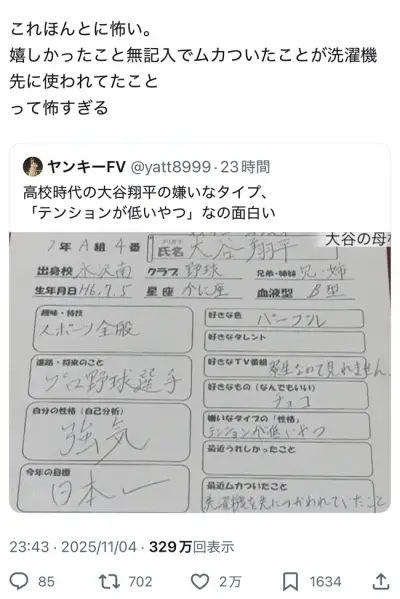 これほんとに怖い。
嬉しかったこと無記入でムカついたことが洗濯機
先に使われてたこと
って怖すぎる
ヤンキーFV @yatt8999・23時間
高校時代の大谷翔平の嫌いなタイプ、
「テンションが低いやつ」なの面白い
大谷の母校
1年A組4番 フリガナ 氏名 大谷翔平
出身校 水沢南 クラブ 野球 兄弟・姉妹 兄・姉
生年月日 H6.7.5 星座 かに座 血液型 B型
趣味・特技
スポーツ全般
進路・将来のこと
プロ野球選手
自分の性格（自己分析）
強気
今年の目標
日本一
好きな色
パープル
好きなタレント
好きなTV番組
寮生なので見れません。
好きなもの（なんでもいい）
チョコ
嫌いなタイプの「性格」
テンションが低いやつ
最近うれしかったこと
最近ムカついたこと
洗濯機を先につかわれていたこと
23:43・2025/11/04・329万回表示
85 702 2万 1634